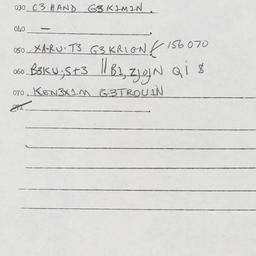 030 C3 HAND G3K1M1N.
040 —
050 XA-RU-T3 G3KRION { 156 070
060 B3KU,S+3 || B1, ZJOJN Qi $
070 KEN3X1M G3TROU1N